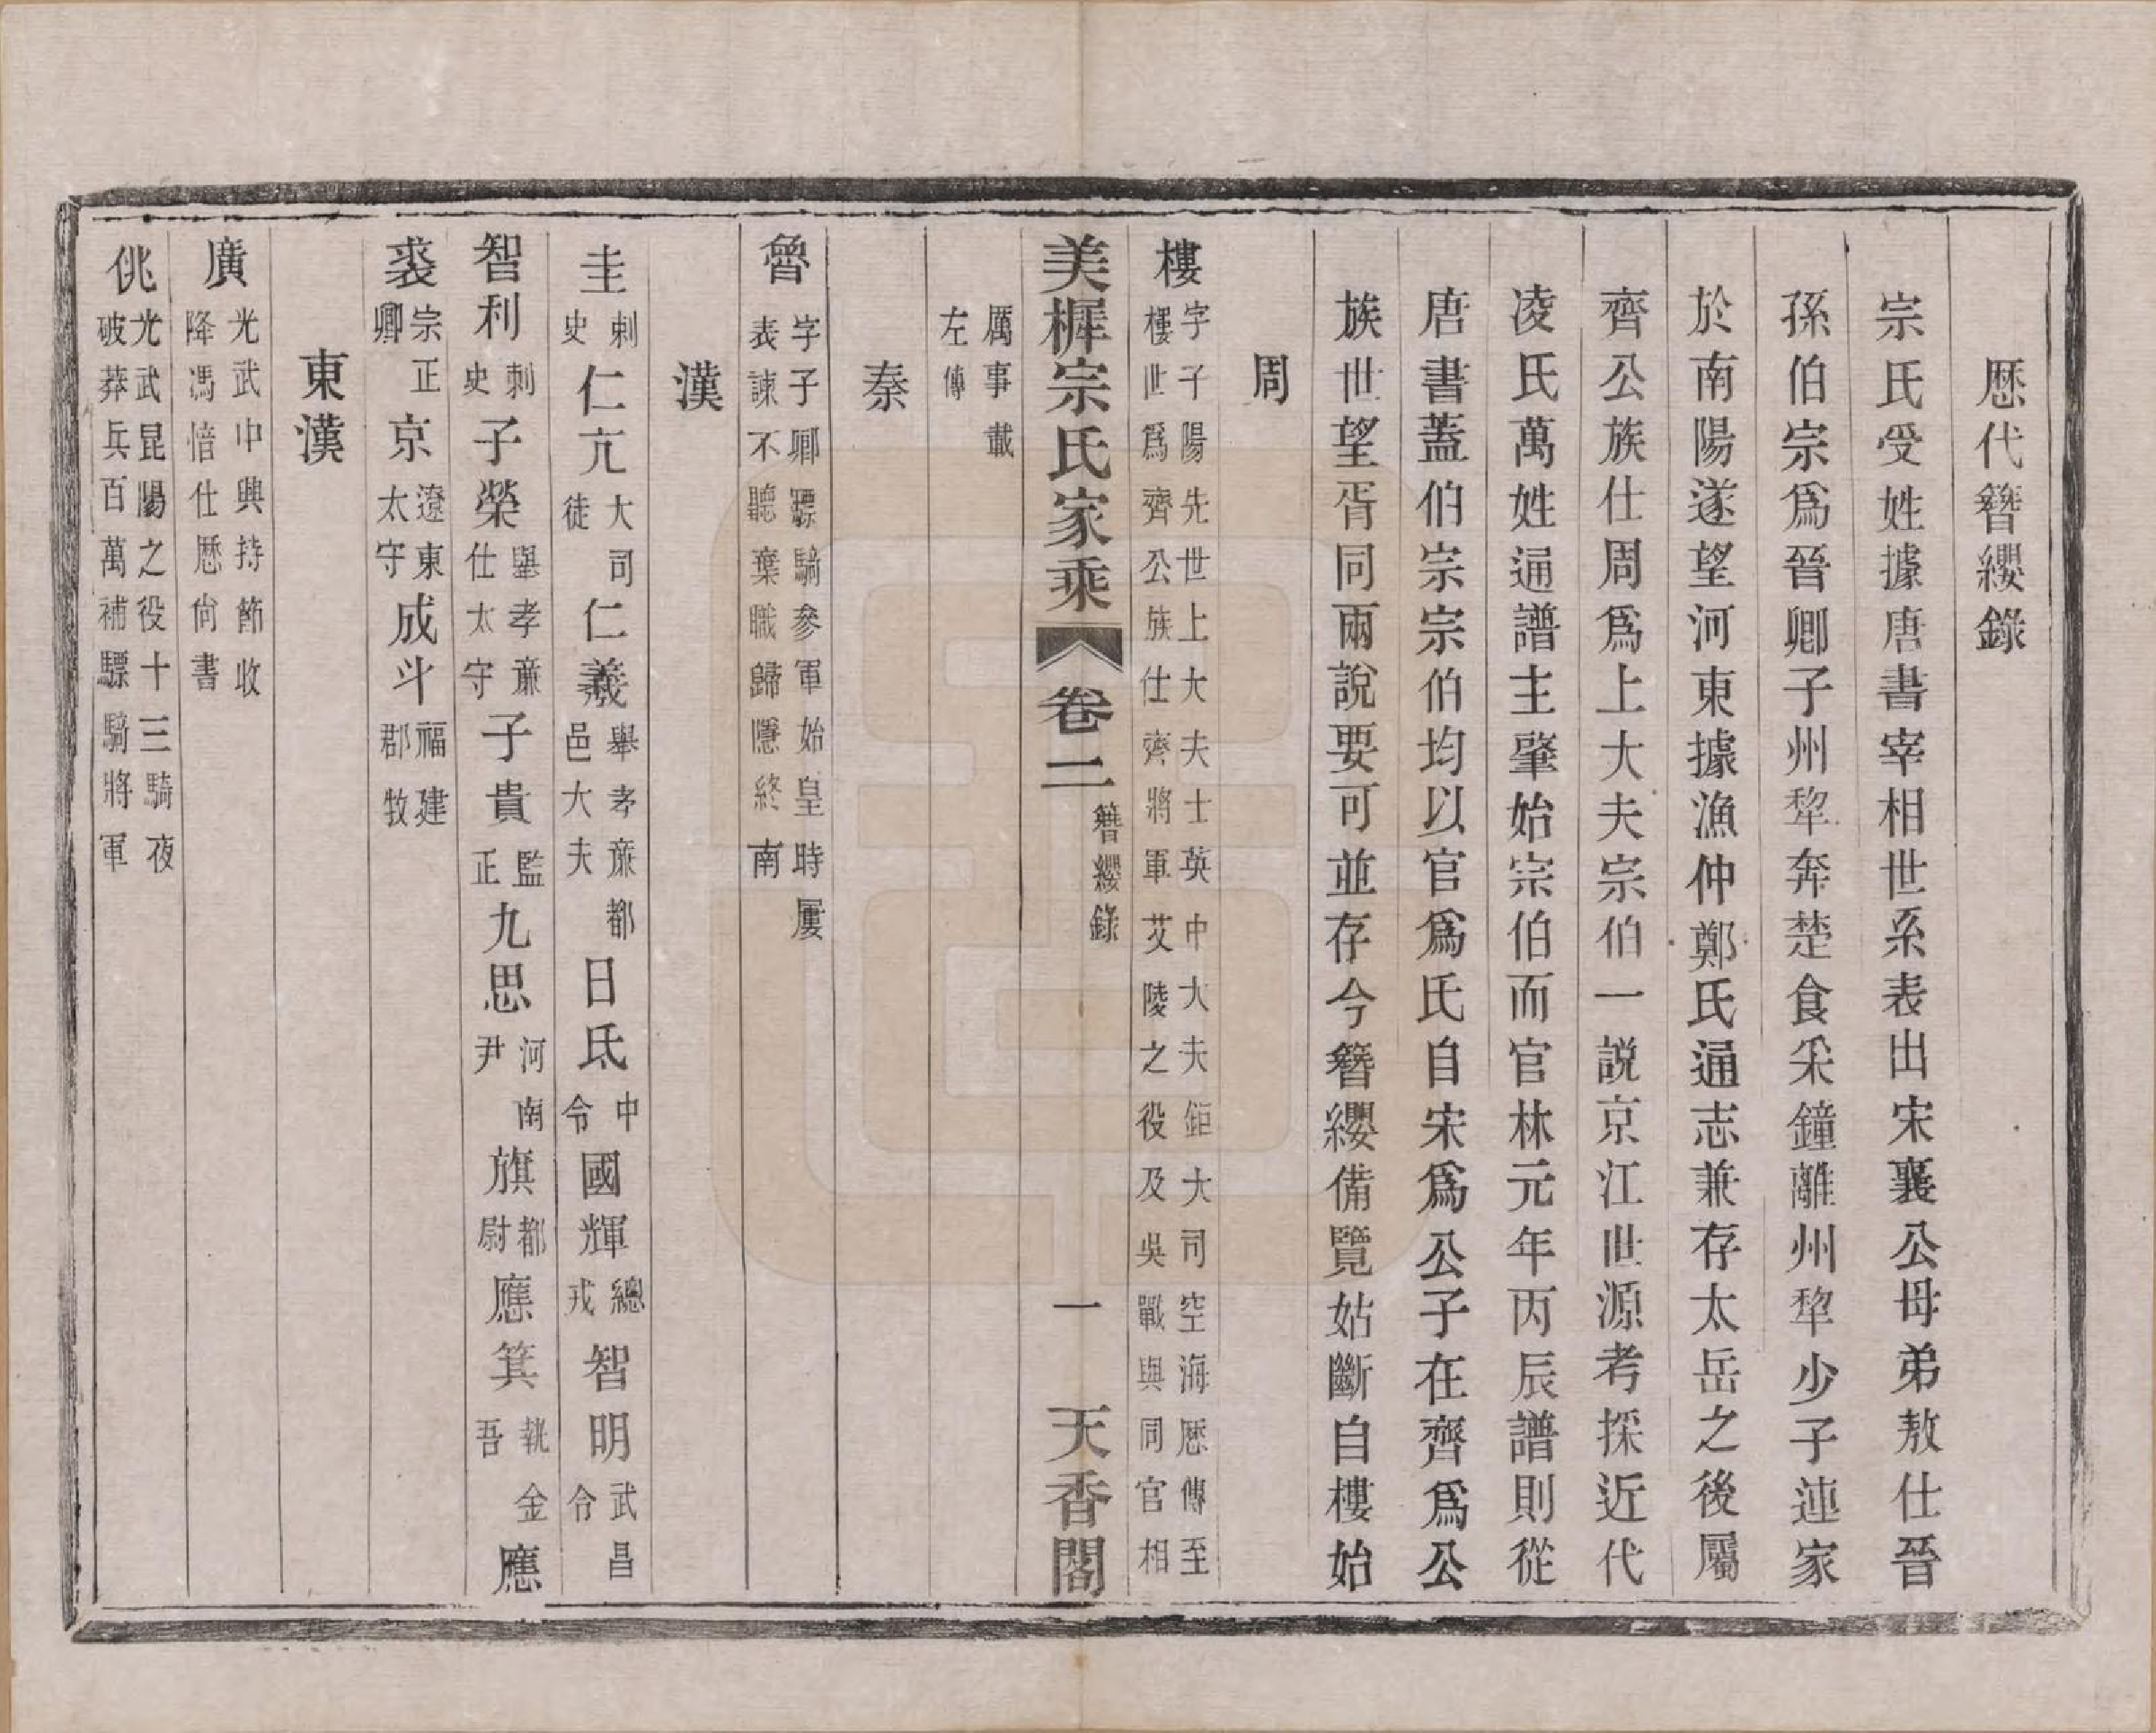 歷代簪纓錄
宗氏受姓據唐書宰相世系表出宋襄公母弟敖仕晉
孫伯宗爲晉卿子州犂奔楚食采鐘離州犂少子連家
於南陽遂望河東據漁仲鄭氏通志兼存太岳之後屬
齊公族仕周爲上大夫宗伯一説京江世源考採近代
凌氏萬姓通譜主肇始宗伯而官林元年丙辰譜則從
唐書蓋伯宗宗伯均以官爲氏自宋爲公子在齊爲公
族世望胥同兩說要可並存今簪纓備覽姑斷自樓始
周
樓 字子陽先世上大夫士英中大夫鉅大司空海歷傳至
樓世爲齊公族仕齊將軍艾陵之役及吳戰與同官相
厲事載
左傳
秦
魯 字子卿驃騎參軍始皇時屢
表諫不聽棄職歸隱終南
漢
圭 刺史 仁亢 大司徒 仁義 舉孝廉都邑大夫 日氐 中令 國輝 總戎 智明 武昌令
智利 刺史 子榮 舉孝廉仕太守 子貴 監正 九思 河南尹 旗 都尉 應箕 執金吾 應
裘 宗正卿 京 遼東太守 成斗 福建郡牧
東漢
廣 光武中興持節收
降馮愔仕歷尙書
佻 光武昆陽之役十三騎夜
破莽兵百萬補驃騎將軍
美樨宗氏家乘 卷二 簪纓錄 一 天香閣